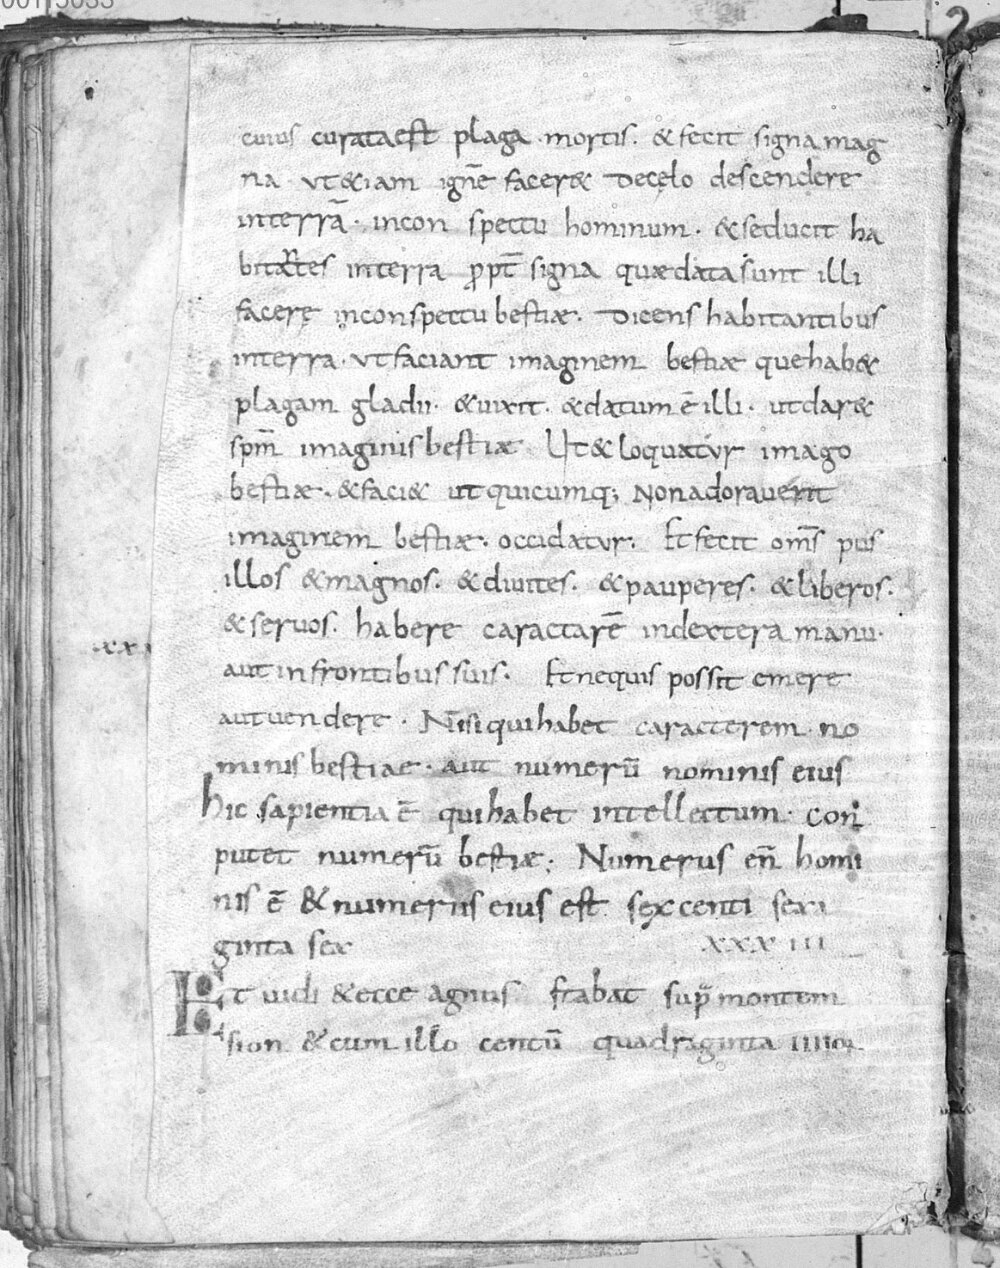 cuius curata est plaga mortis. & fecit signa mag
na ut & iam ignē facer& decęlo descendere
in terrā. in con spectu hominum. & seducit ha
bitantes in terra ꝓpt̄ signa quae data sunt illi
facere in conspectu bestiae. Dicens habitantibus
in terra. ut faciant imaginem bestiae que hab&
plagam gladii. & uixit. & datum ē illi. ut dar&
spm̄ imaginis bestiae Ut & loquatur imago
bestiae. & faci& ut quicumq; Non adorauerit
imaginem bestiae. occidatur. Et fecit oms̄ pus
illos & magnos. & diuites. & pauperes. & liberos.
& seruos. habere caractarē in dextera manu.
aut in frontibus suis. Et ne quis possit emere
aut uendere. Nisi qui habet caracterem no
minis bestiae. aut numerū nominis eius
hic sapientia ē qui habet intellectum. con
putet numerū bestiae; Numerus en̄ homi
nis ē & numerus eius est sexcenti sexa
ginta sex xxxiii
Et uidi & ecce agnus stabat sup̄ montem
sion & cum illo centū quadraginta iiiior